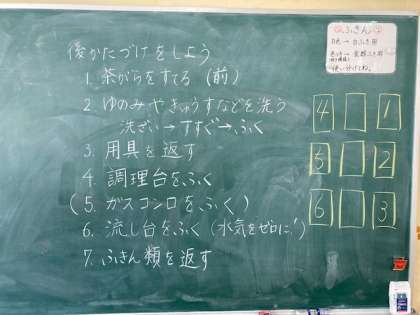 後かたづけをしよう
1. 茶がらをすてる (前)
2 ゆのみやきゅうすなどを洗う
洗ざい→すすぐ→ふく
3. 用具を返す
4. 調理台をふく
(5. ガスコンロをふく)
6. 流し台をふく (水気をゼロに!)
7. ふきん類を返す
ふきん
白色→台ふき用
→食器ふき用
使い分けてね。
4 1
5 2
6 3